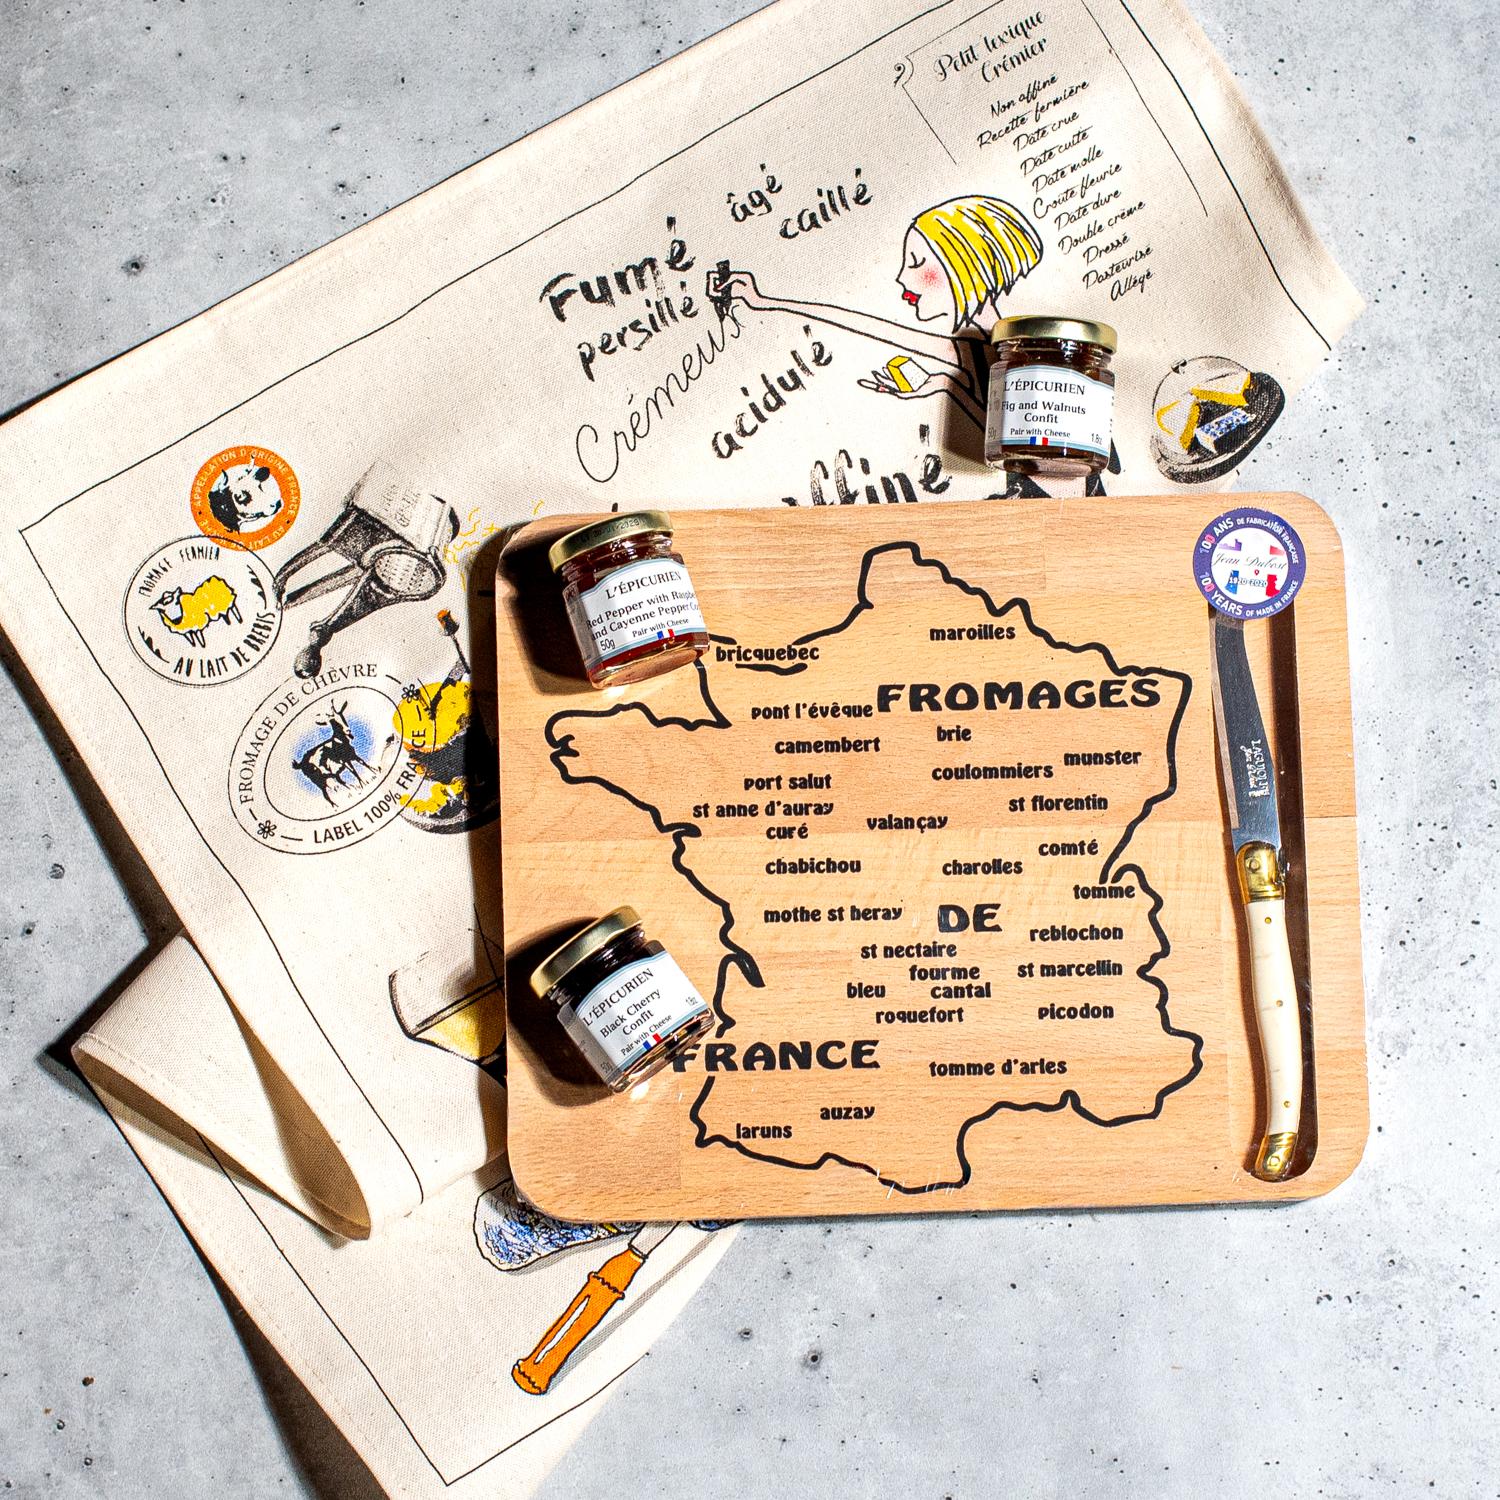 Petit lexique
Crémier
Non affiné
Recette fermière
Pâte crue
Pâte cuite
Pâte molle
Croûte fleurie
Pâte dure
Double crème
Pressé
Pasteurisé
Allégé
âgé
caillé
Fumé
persillé
Crémeux
acidulé
affiné
L'ÉPICURIEN
Fig and Walnuts
Confit
Pair with Cheese
50g
1.8oz
APPELLATION D'ORIGINE FRANCE
FROMAGE FERMIER
AU LAIT DE BREBIS
FROMAGE DE CHÈVRE
LABEL 100% FRANCE
L'ÉPICURIEN
Red Pepper with Raspbe
and Cayenne Pepper Co
Pair with Cheese
50g
100 ANS DE FABRICATION FRANÇAISE
Jean Dubost
1920-2020
100 YEARS OF MADE IN FRANCE
LAGUIOLE
maroilles
bricquebec
FROMAGES
pont l'évêque
brie
camembert
munster
coulommiers
port salut
st florentin
st anne d'auray
valançay
curé
comté
chabichou
charolles
tomme
mothe st heray
DE
reblochon
st nectaire
fourme
st marcellin
bleu
cantal
roquefort
picodon
FRANCE
tomme d'arles
auzay
laruns
L'ÉPICURIEN
Black Cherry
Confit
Pair with Cheese
50g
1.8oz